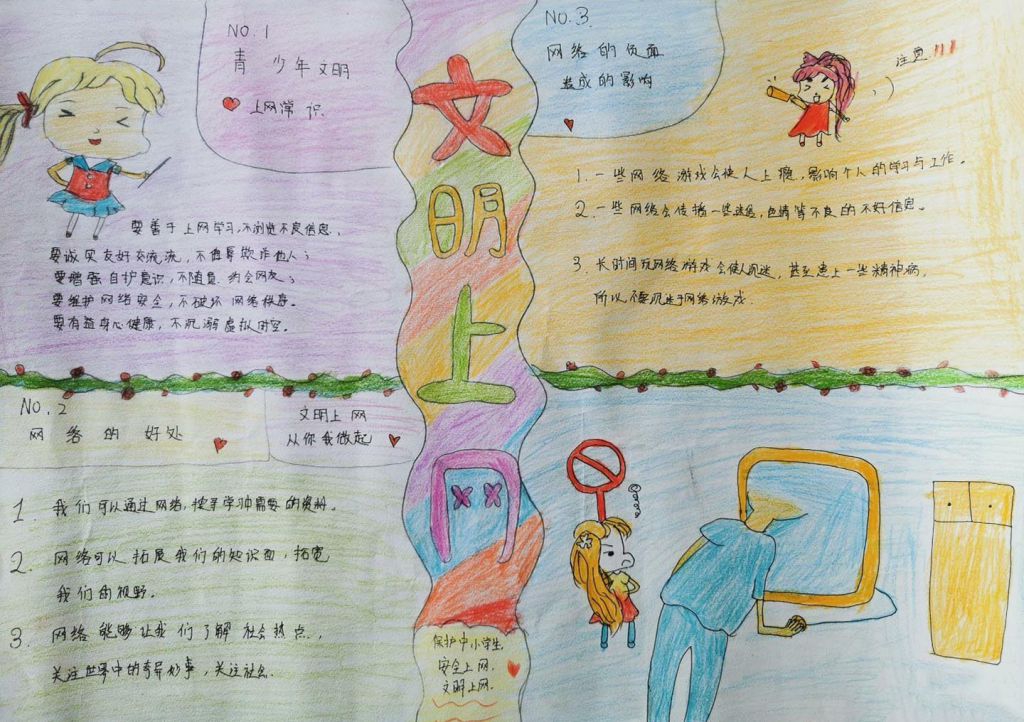 NO.1
青少年文明
上网常识
要善于上网学习,不浏览不良信息,
要诚实友好交流流,不侮辱欺诈他人;
要增强自护意识,不随意约会网友;
要维护网络安全,不破坏网络秩序。
要有益身心健康,不沉溺虚拟时空。
NO.2
网络的好处
文明上网
从你我做起
1. 我们可以通过网络,搜寻学习中需要的资料。
2. 网络可以拓展我们的知识面,拓宽
我们的视野。
3. 网络能够让我们了解社会热点,
关注世界中的奇异妙事,关注社会.
文明上网
保护中小学生,
安全上网.
文明上网.
NO.3.
网络的负面
造成的影响
注意!!!
1. 一些网络游戏会使人上瘾,影响个人的学习与工作。
2. 一些网络会传播一些迷信,色情等不良的不好信息。
3. 长时间玩网络游戏会使人沉迷,甚至患上一些精神病,
所以不要沉迷于网络游戏.